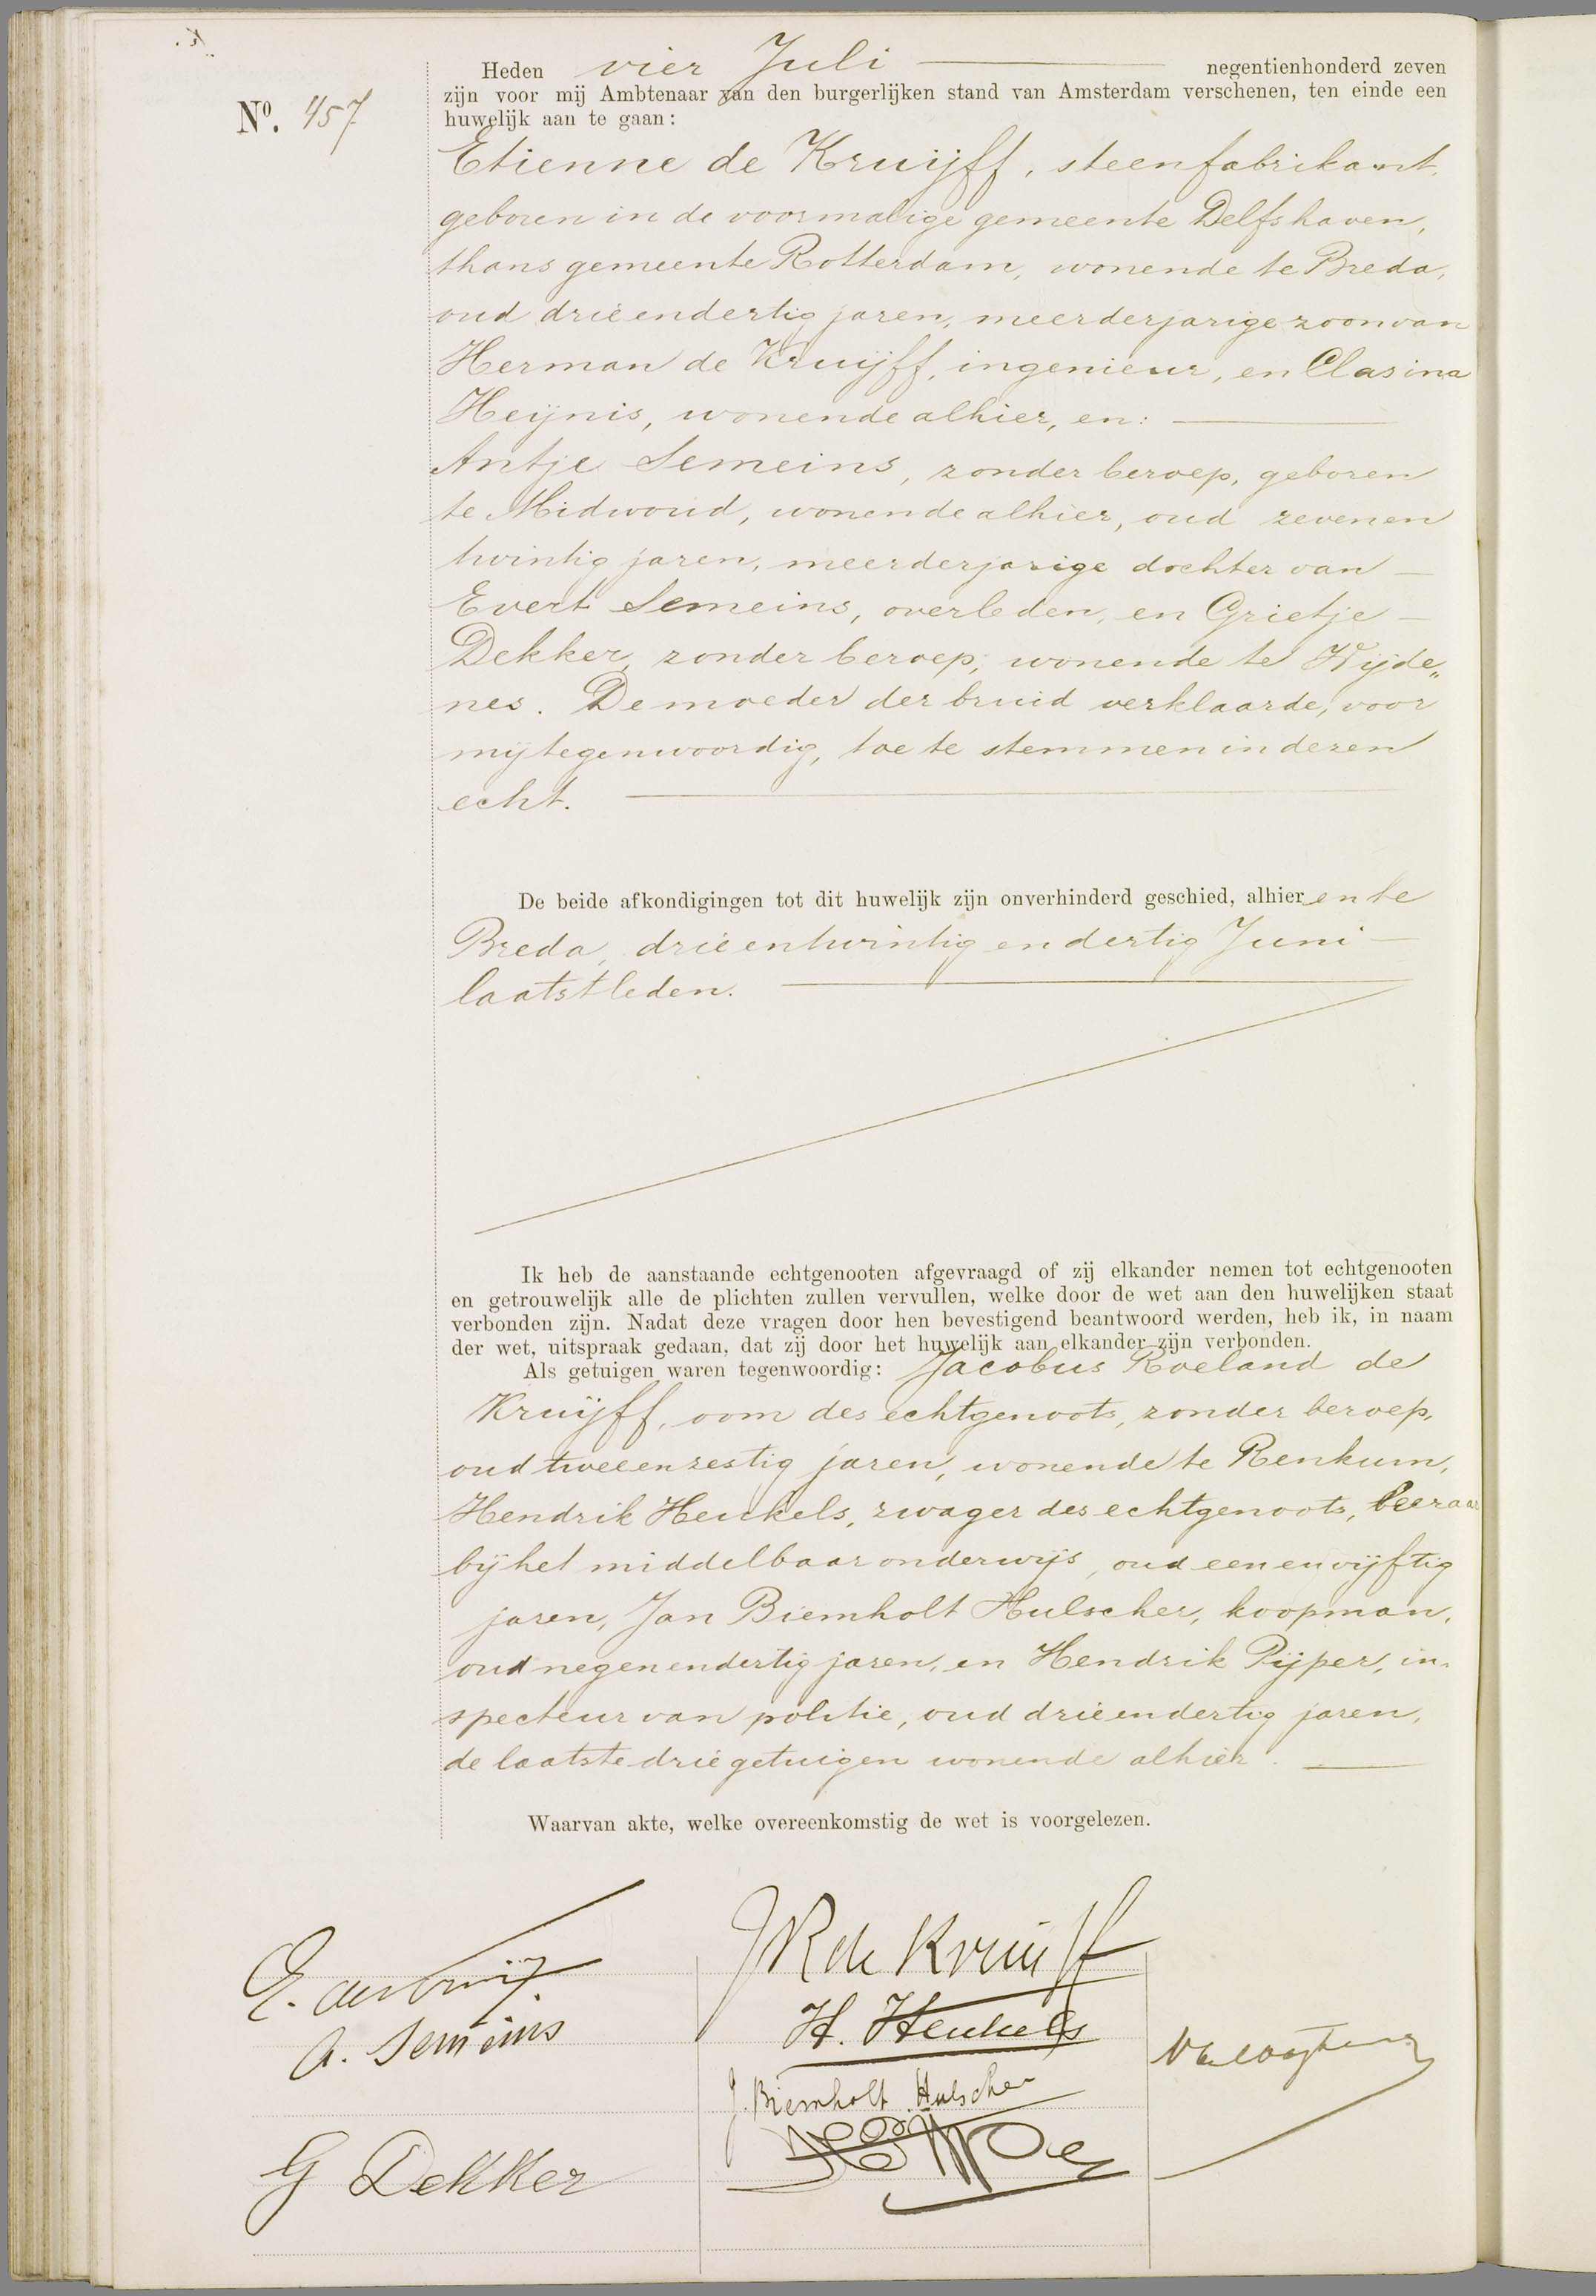 Heden vier Juli negentienhonderd zeven
zijn voor mij Ambtenaar van den burgerlijken stand van Amsterdam verschenen, ten einde een
No. 457
huwelijk aan te gaan:
Etienne de Kruijff, steenfabrikant,
geboren in de voormalige gemeente Delfshaven,
thans gemeente Rotterdam, wonende te Breda,
oud drieendertig jaren, meerderjarige zoon van
Herman de Kruijff, ingenieur, en Clasina
Heijnis, wonende alhier, en:
Antje Semeins, zonder beroep, geboren
te Midwoud, wonende alhier, oud zevenen
twintig jaren, meerderjarige dochter van
Evert Semeins, overleden, en Grietje
Dekker, zonder beroep, wonende te Wijde„
nes. De moeder der bruid verklaarde, voor
mij tegenwoordig, toe te stemmen in dezen
echt.
De beide afkondigingen tot dit huwelijk zijn onverhinderd geschied, alhier en te
Breda, drieentwintig en dertig Juni
laatstleden.
Ik heb de aanstaande echtgenooten afgevraagd of zij elkander nemen tot echtgenooten
en getrouwelijk alle de plichten zullen vervullen, welke door de wet aan den huwelijken staat
verbonden zijn. Nadat deze vragen door hen bevestigend beantwoord werden, heb ik, in naam
der wet, uitspraak gedaan, dat zij door het huwelijk aan elkander zijn verbonden.
Als getuigen waren tegenwoordig: Jacobus Roeland de
Kruijff, oom des echtgenoots, zonder beroep,
oud tweeenzestig jaren, wonende te Renkum,
Hendrik Heukels, zwager des echtgenoots, leeraar
bij het middelbaar onderwijs, oud eenenvijftig
jaren, Jan Biemholt Hulscher, koopman,
oud negenendertig jaren, en Hendrik Pijper, in-
specteur van politie, oud drieendertig jaren,
de laatste drie getuigen wonende alhier.
Waarvan akte, welke overeenkomstig de wet is voorgelezen.
E. de Kruijff
A. Semeins
G Dekker
JR de Kruijff
H. Heukels
J. Biemholt Hulscher